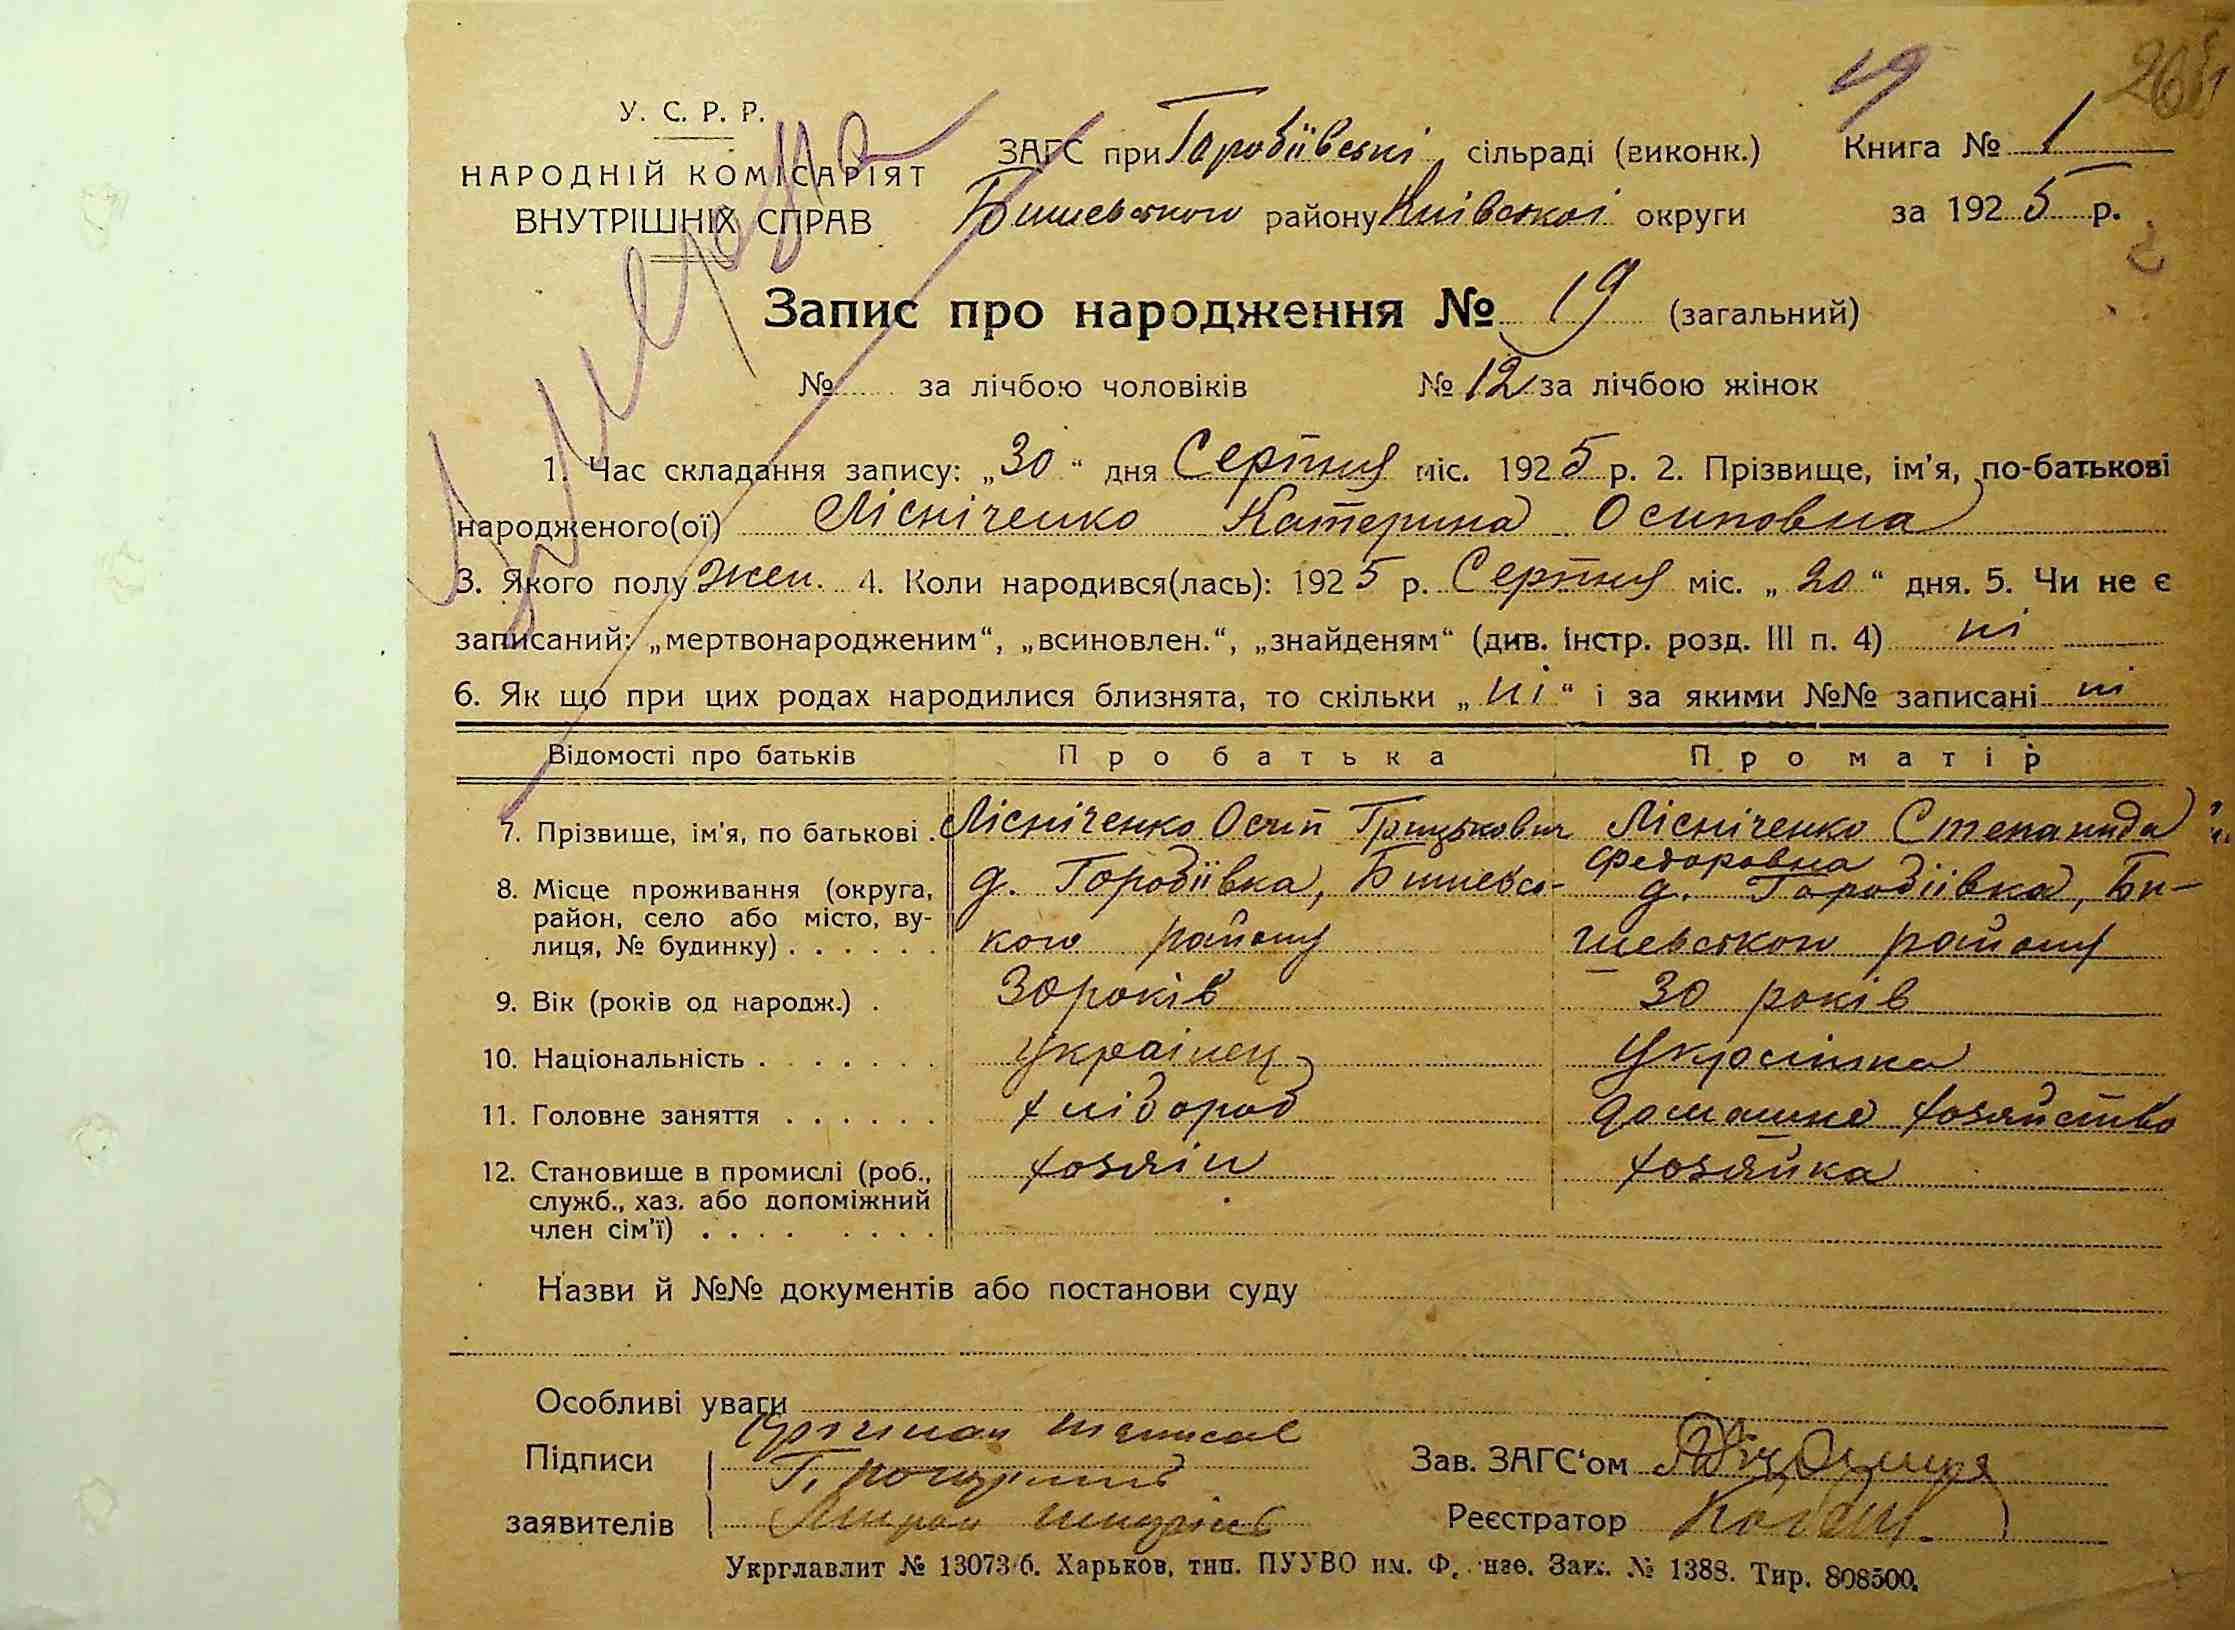 19
У. С. Р. Р.
НАРОДНІЙ КОМІСАРІЯТ
ВНУТРІШНІХ СПРАВ
ЗАГС при Горобіївські сільраді (виконк.)
Бишевського району Київської округи
Книга № 1
за 1925 р.
Запис про народження № 19 (загальний)
№ за лічбою чоловіків № 12 за лічбою жінок
1. Час складання запису: „30“ дня Серпня міс. 1925 р. 2. Прізвище, ім'я, по-батькові
народженого(ої) Лісніченко Катерина Осиповна
3. Якого полу жен. 4. Коли народився(лась): 1925 р. Серпня міс. „20“ дня. 5. Чи не є
записаний: „мертвонародженим“, „всиновлен.“, „знайденям“ (див. інстр. розд. III п. 4) ні
6. Як що при цих родах народилися близнята, то скільки „ні“ і за якими №№ записані ні
Відомості про батьків Про батька Про матір
7. Прізвище, ім'я, по батькові . Лісніченко Осип Грицькович Лісніченко Степанида
Федоровна
8. Місце проживання (округа, район, село або місто, вулиця, № будинку) . . . . . . д. Горобіївка, Бишевсь- д. Горобіївка, Би-
кого району шевського району
9. Вік (років од народж.) . 30 років 30 років
10. Національність . . . . . . . українец Українка
11. Головне заняття . . . . . . хлібороб домашнє хозяйство
12. Становище в промислі (роб., служб., хаз. або допоміжний член сім'ї) . . . . . . . . хозяїн хозяйка
Назви й №№ документів або постанови суду
Особливі уваги
Підписи
заявителів
Зав. ЗАГС'ом
Реєстратор
Укрглавлит № 13073/б. Харьков, тип. ПУУВО им. Ф. Зак. № 1388. Тир. 808500.